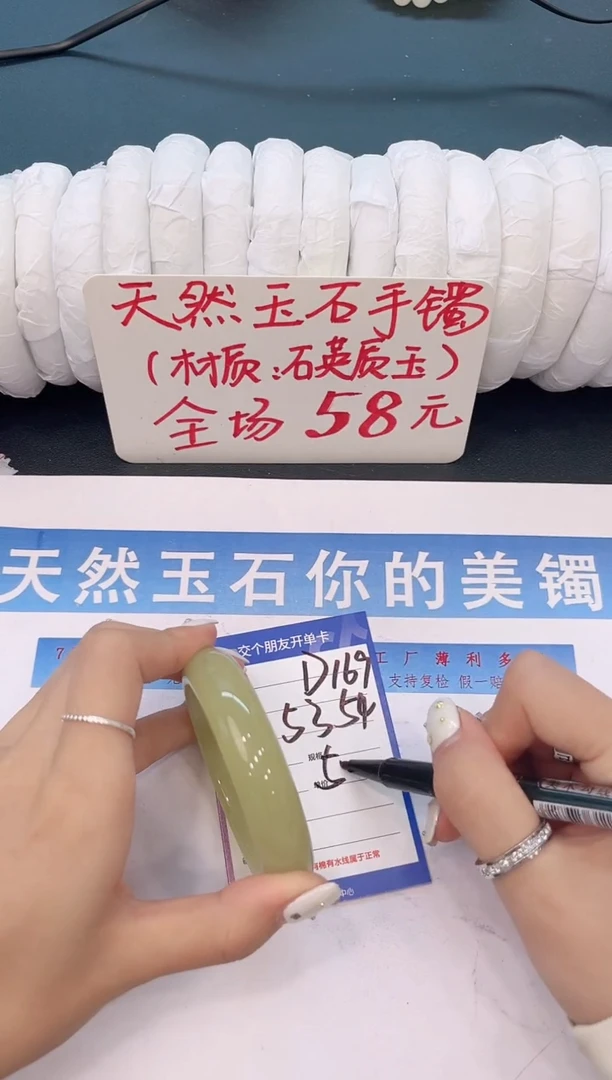 天然玉石手镯
（材质：石英质玉）
全场 58元
天然玉石你的美镯
7
工厂薄利多
支持复检 假一赔
交个朋友开单卡
D169
5354
规格
5
棉有水线属于正常
中心